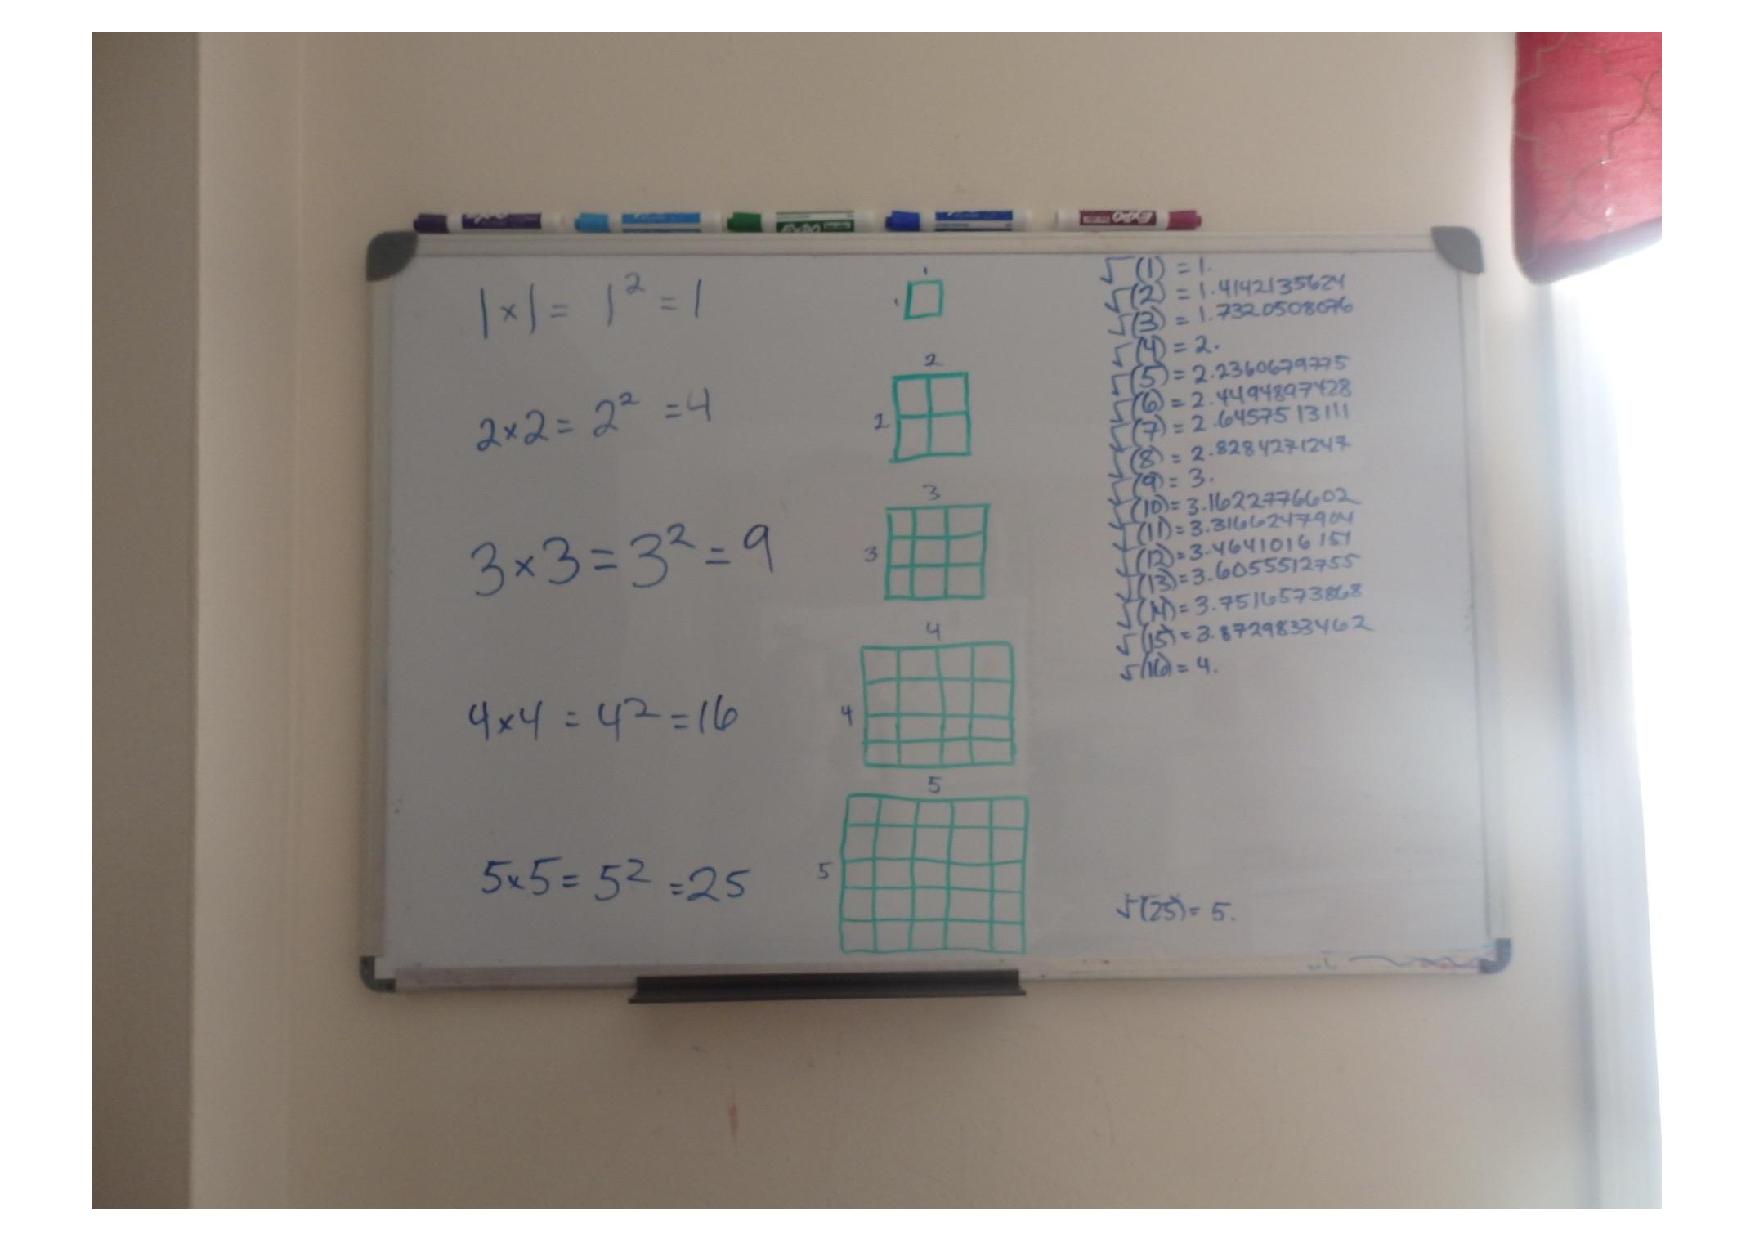 EXPO
EXPO
EXPO
1×1 = 1² = 1
1
1
2×2 = 2² = 4
2
2
3×3 = 3² = 9
3
3
4×4 = 4² = 16
4
4
5×5 = 5² = 25
5
5
√(1) = 1.
√(2) = 1.4142135624
√(3) = 1.7320508076
√(4) = 2.
√(5) = 2.2360679775
√(6) = 2.4494897428
√(7) = 2.6457513111
√(8) = 2.8284271247
√(9) = 3.
√(10) = 3.1622776602
√(11) = 3.3166247904
√(12) = 3.4641016151
√(13) = 3.6055512755
√(14) = 3.7516573868
√(15) = 3.8729833462
√(16) = 4.
√(25) = 5.